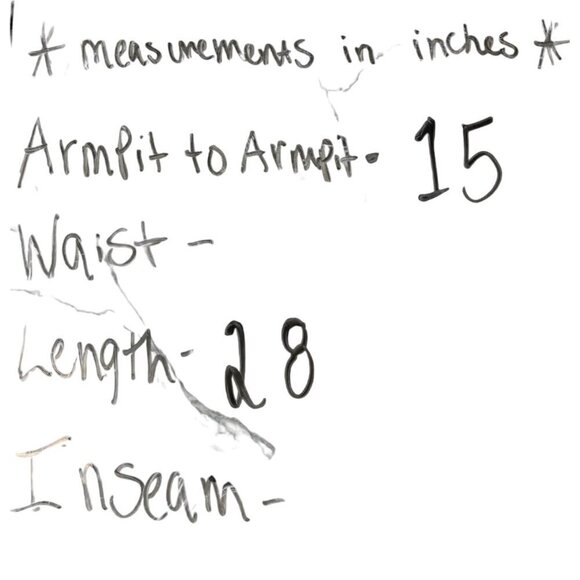 * measurements in inches *
ArmPit to Armpit- 15
Waist -
Length- 28
Inseam -